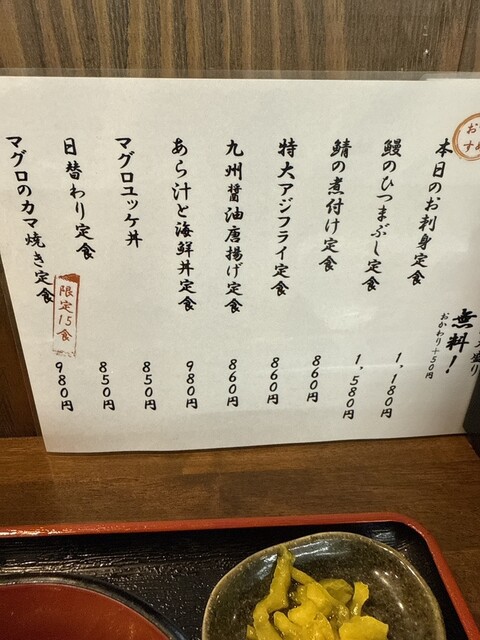 お
すめ
盛り
無料!
おかわり+50円
本日のお刺身定食 1,180円
鰻のひつまぶし定食 1,580円
鯖の煮付け定食 860円
特大アジフライ定食 860円
九州醤油唐揚げ定食 860円
あら汁と海鮮丼定食 980円
マグロユッケ丼 850円
日替わり定食 850円
限定15食
マグロのカマ焼き定食 980円